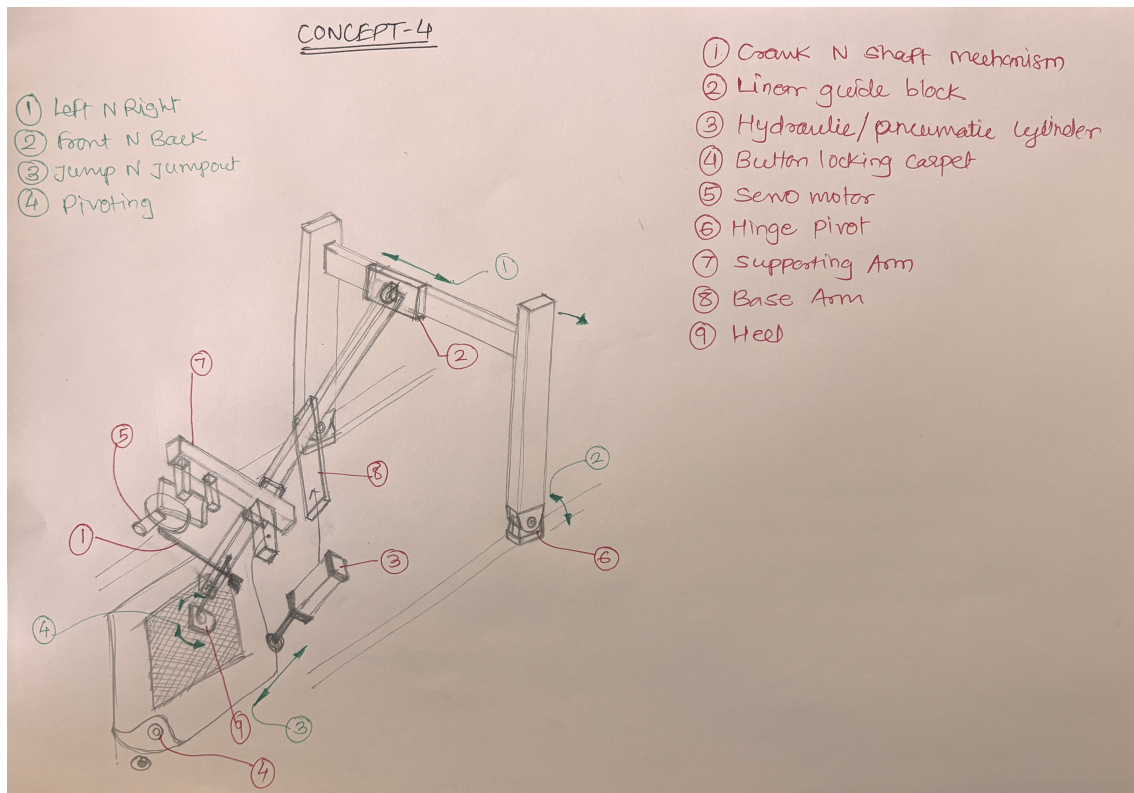 CONCEPT-4
① Left N Right
② Front N Back
③ Jump N Jumpout
④ Pivoting
① Crank N shaft mechanism
② Linear guide block
③ Hydraulic/pneumatic cylinder
④ Button locking carpet
⑤ Servo motor
⑥ Hinge Pivot
⑦ Supporting Arm
⑧ Base Arm
⑨ Heel
①
②
⑦
⑤
⑧
②
①
③
⑥
④
⑨
③
④